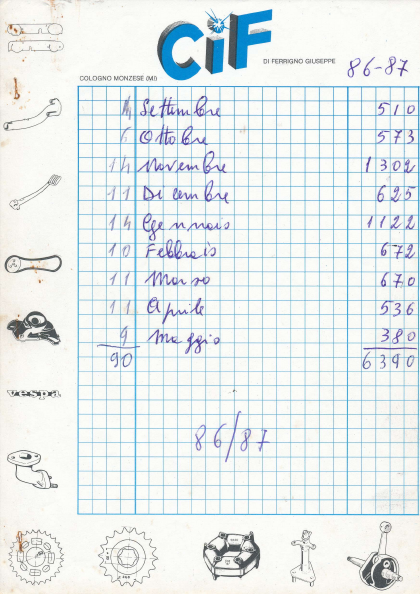 CiF
DI FERRIGNO GIUSEPPE
86-87
COLOGNO MONZESE (MI)
4 Settembre 510
6 Ottobre 573
14 Novembre 1302
11 Dicembre 625
14 Gennaio 1122
10 Febbraio 672
11 Marzo 670
11 Aprile 536
9 Maggio 380
90 6390
vespa
86/87